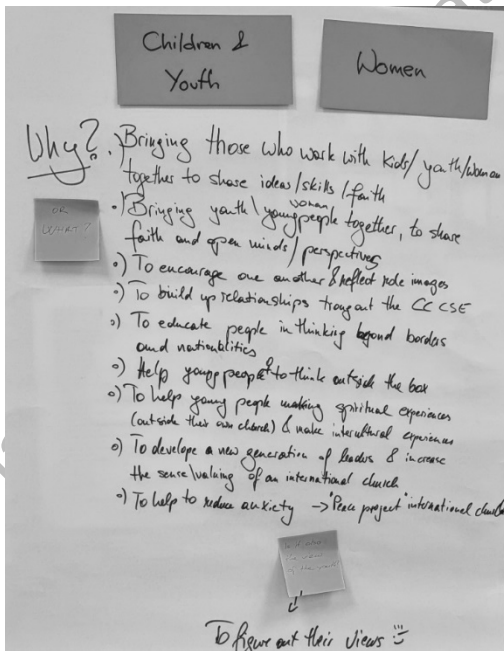 Children &
Youth
Women
Why?
.) Bringing those who work with kids/youth/woman
together to share ideas/skills/faith
OR
WHAT?
woman
.) Bringing youth\young people together, to share
faith and open minds/perspectives
o) To encourage one another & reflect role images
o) To build up relationships trougout the CC CSE
o) To educate people in thinking beyond borders
and nationalities
o) Help young people to think outside the box
o) To help young people making spiritual experiences
(outside their own church) & make intercultural experiences
o) To develop a new generation of leaders & increase
the sense\valuing of an international church
o) To help to reduce anxiety → "Peace project" international church
To figure out their views